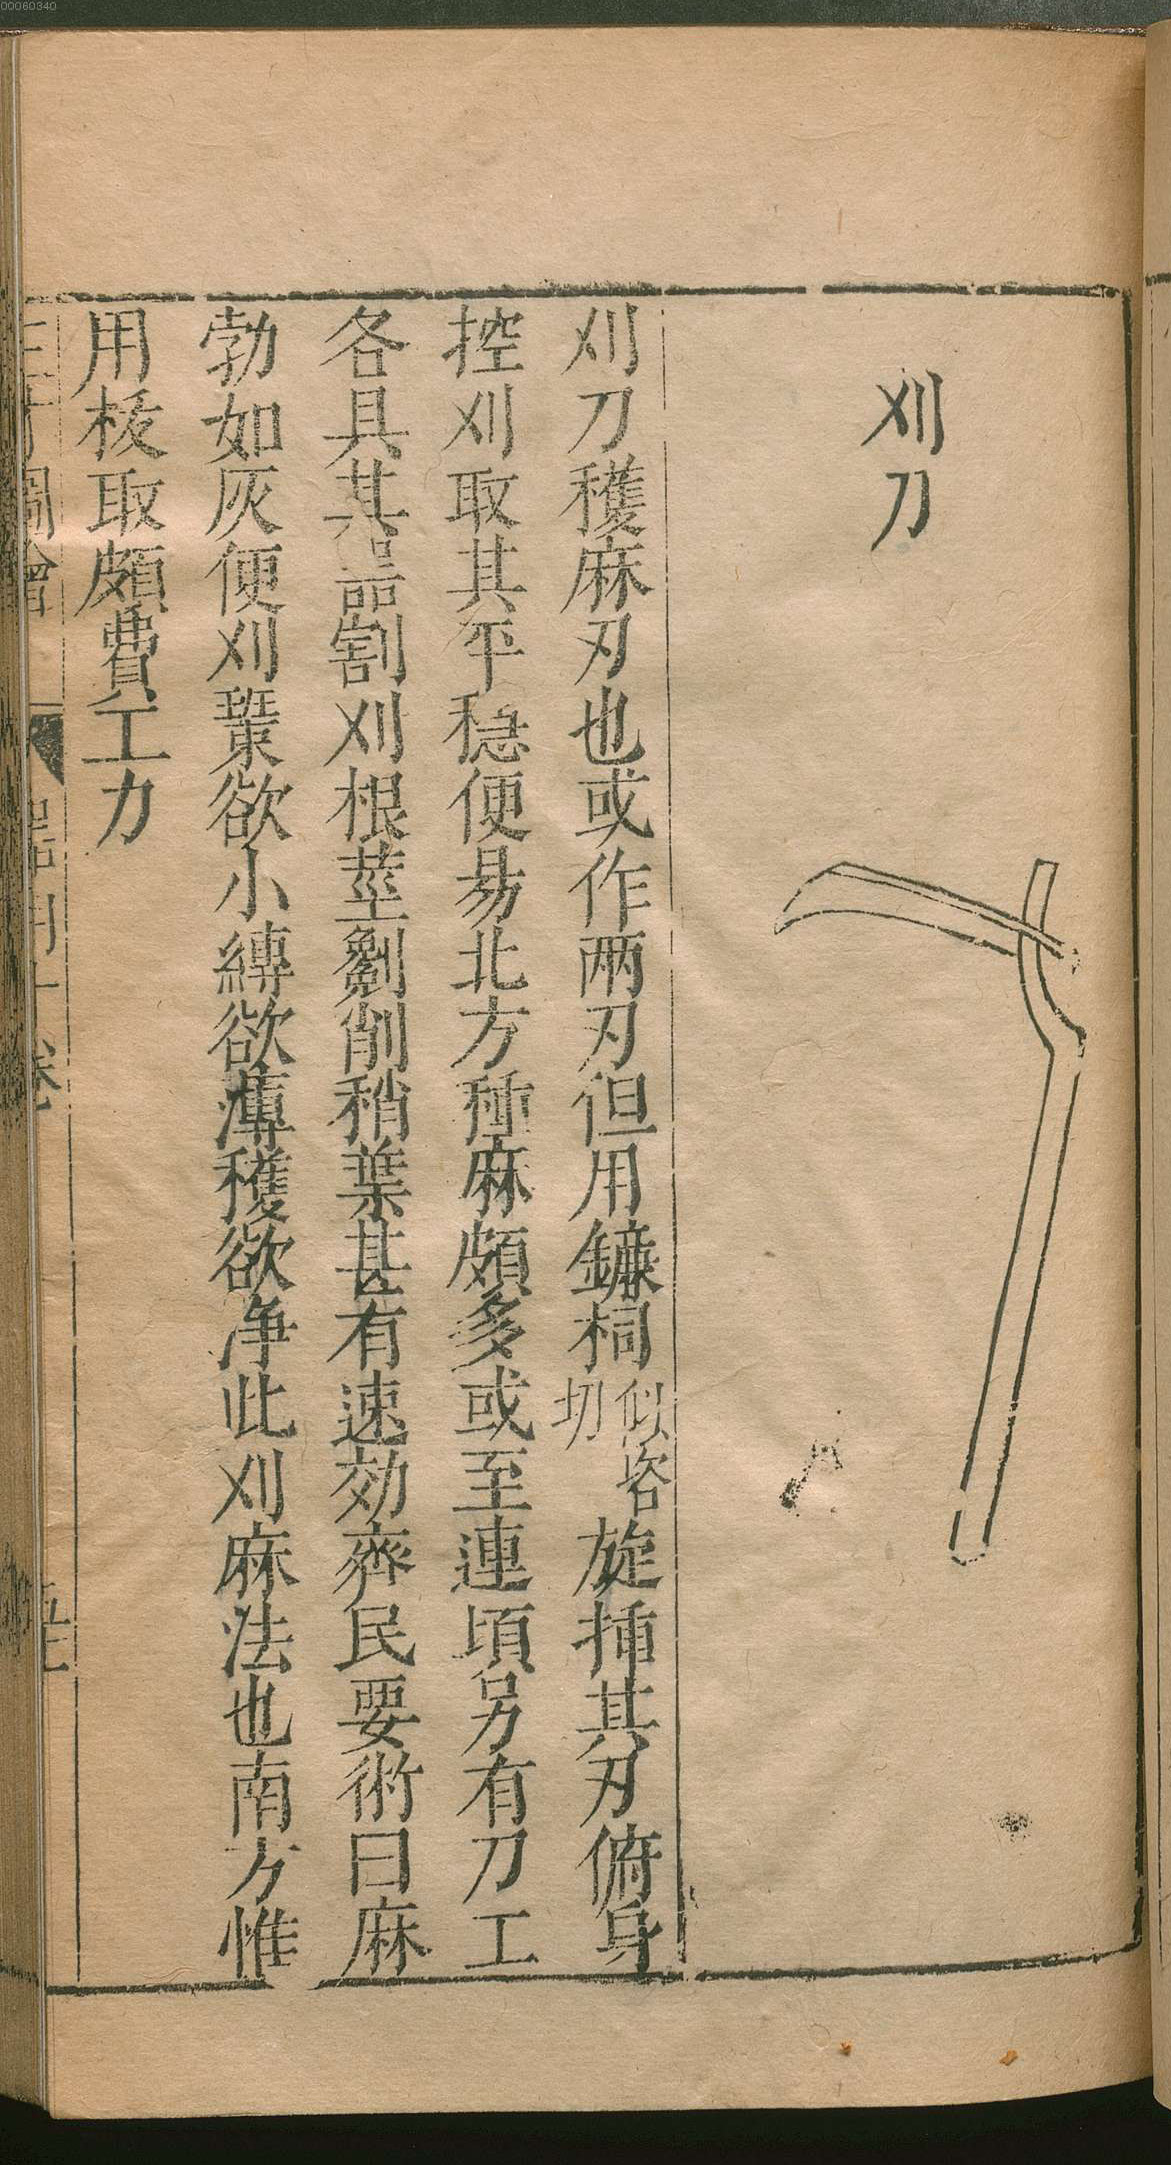 00060340
刈刀
刈刀穫麻刃也或作兩刃但用鐮柌似咨切旋揷其刃俯身
控刈取其平穩便易北方種麻頗多或至連頃另有刀工
各具其器割刈根莖劉削稍葉甚有速効齊民要術曰麻
勃如灰便刈䅌欲小縛欲薄穫欲净此刈麻法也南方惟
用拔取頗費工力
三才圖會
器用十卷